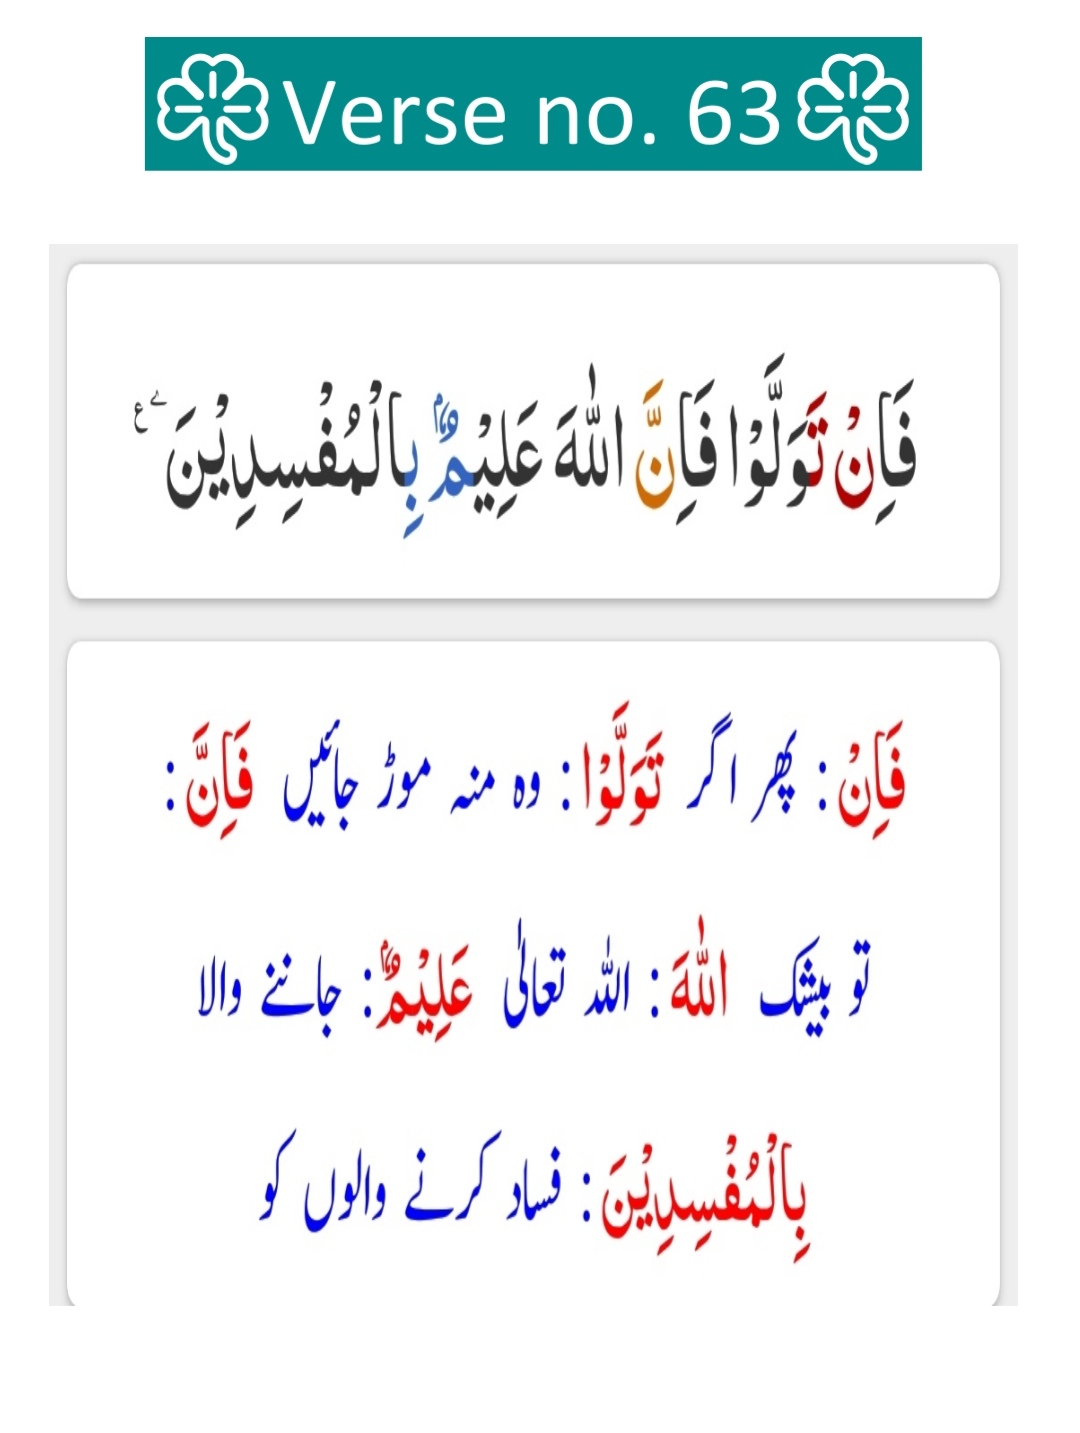 Verse no. 63
فَاِنْ تَوَلَّوْا فَاِنَّ اللّٰهَ عَلِیْمٌۢ بِالْمُفْسِدِیْنَ۠ ع
فَاِنْ : پھر اگر تَوَلَّوْا : وہ منہ موڑ جائیں فَاِنَّ :
تو بیشک اللّٰهَ : اللہ تعالیٰ عَلِیْمٌۢ : جاننے والا
بِالْمُفْسِدِیْنَ : فساد کرنے والوں کو